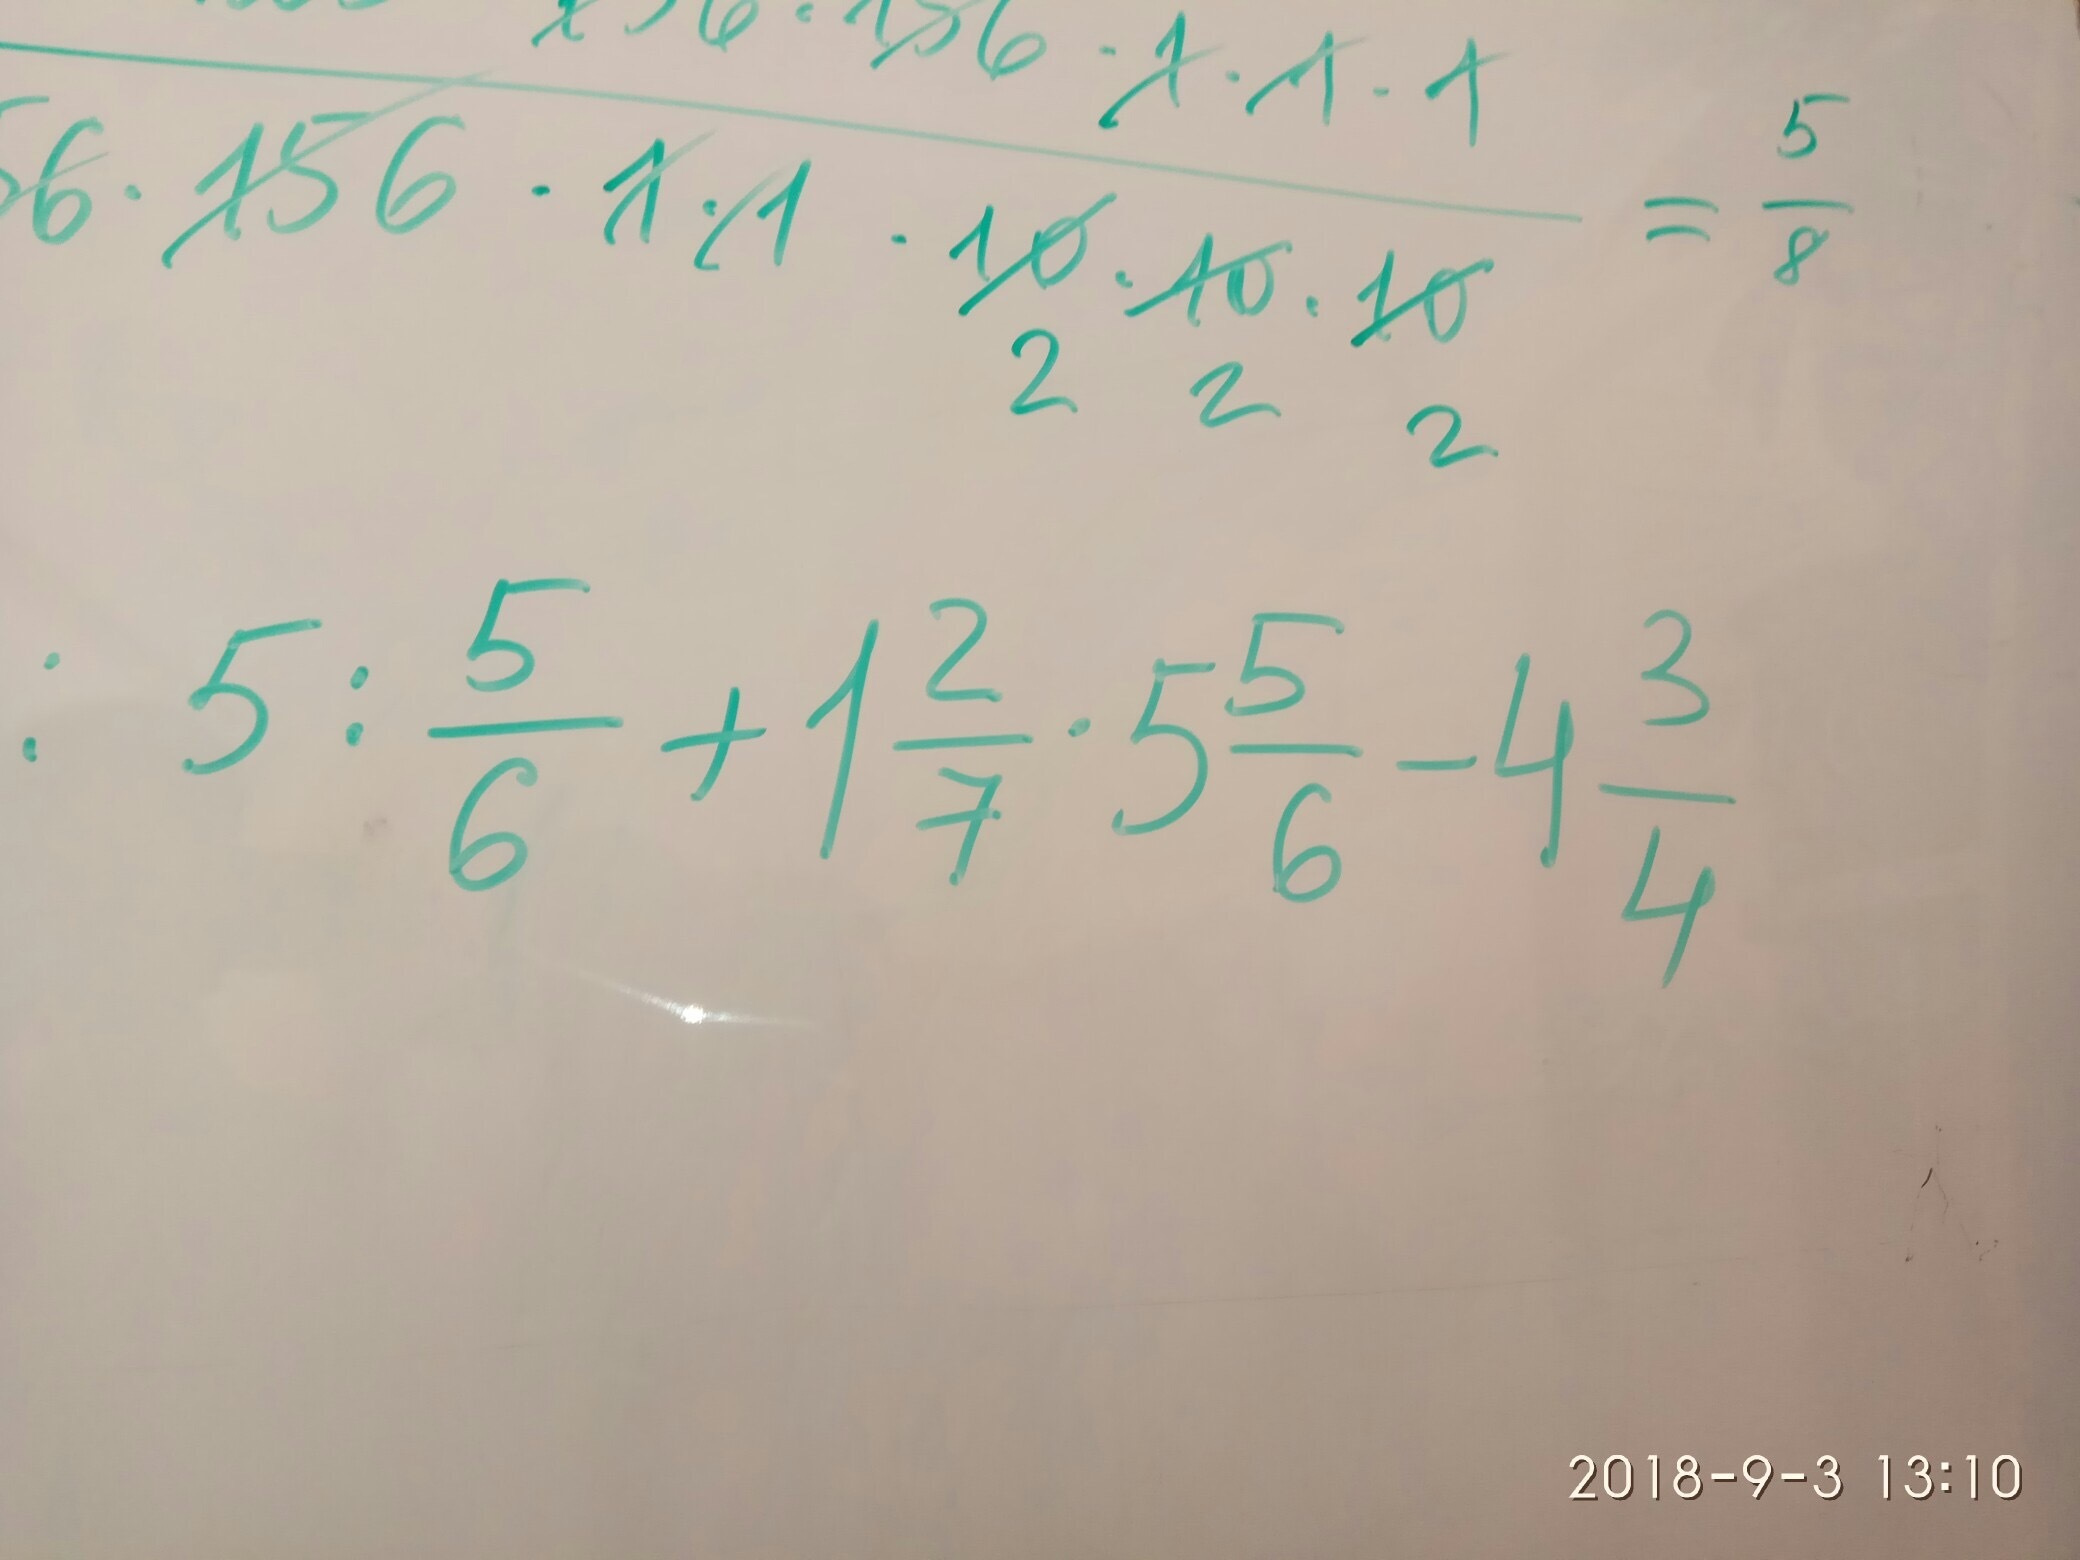 156 · 156 · 1 · 1 · 1
56 · 156 · 1 · 1 · 10 · 10 · 10 = 5/8
2 2 2
: 5 : 5/6 + 1 2/7 · 5 5/6 - 4 3/4
2018-9-3 13:10